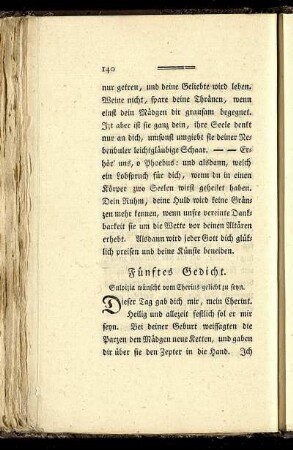 140
nur getreu, und deine Geliebte wird leben.
Weine nicht, spare deine Thränen, wenn
einst dein Mädgen dir grausam begegnet.
Izt aber ist sie ganz dein, ihre Seele denkt
nur an dich, umsonst umgiebt sie deiner Ne-
benbuler leichtgläubige Schaar. — — Er-
hör' uns, o Phoebus: und alsdann, welch
ein Lobspruch für dich, wenn du in einen
Körper zwo Seelen wirst geheilet haben.
Dein Ruhm, deine Huld wird keine Grän-
zen mehr kennen, wenn unsre vereinte Dank-
barkeit sie um die Wette vor deinen Altären
erhebt. Alsdann wird jeder Gott dich glük-
lich preisen und deine Künste beneiden.
Fünftes Gedicht.
Sulpizia wünscht vom Cherint geliebt zu seyn.
Dieser Tag gab dich mir, mein Cherint.
Heilig und allezeit festlich sol er mir
seyn. Bei deiner Geburt weissagten die
Parzen den Mädgen neue Ketten, und gaben
dir über sie den Zepter in die Hand. Ich